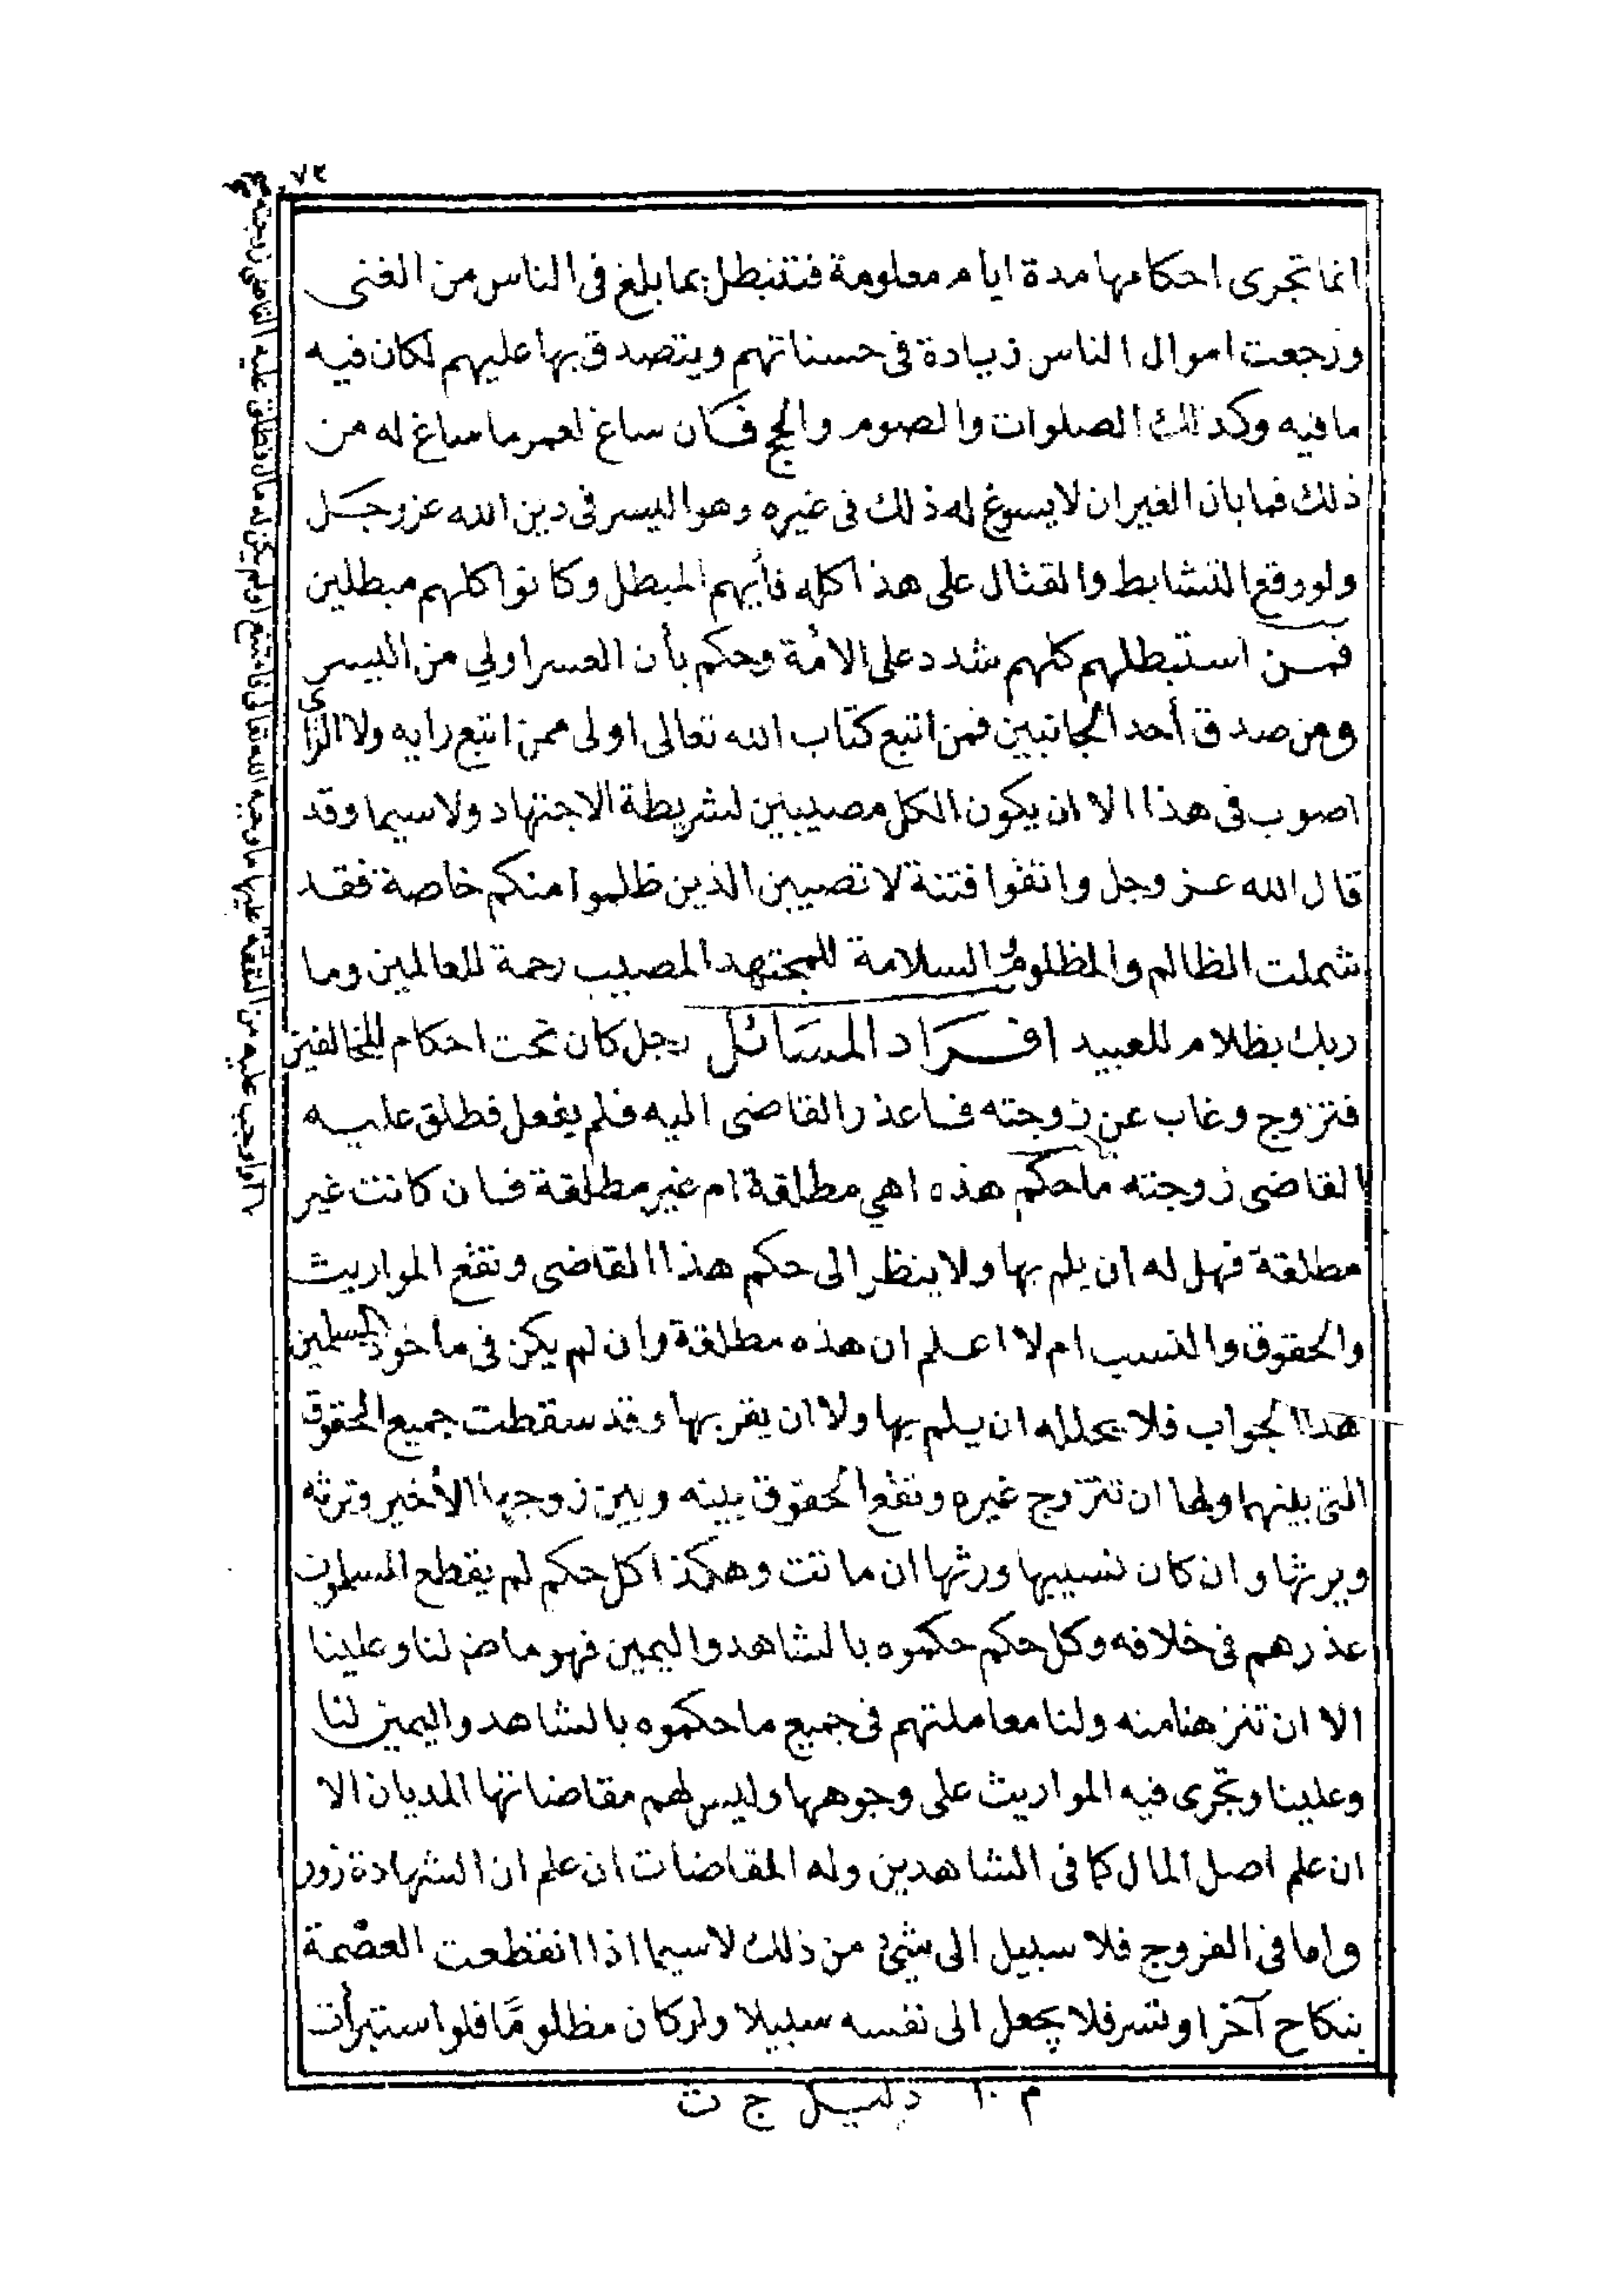 ٧٣
انما تجرى احكامها مدة ايام معلومة فتتبطل بما بلغ فى الناس من الغنى
ورجعت اموال الناس زيادة فى حسناتهم ويتصدق بها عليهم لكان فيه
مافيه وكذلك الصلوات والصوم والحج فكان ساغ لعمر ما ساغ له من
ذلك فما بان الغير ان لا يسوغ له ذلك فى غيره وهو اليسر فى دين الله عز وجل
ولو وقع التشابط والقتال على هذا كله فأيهم المبطل وكانوا كلهم مبطلين
فمن استبطلهم كلهم شدد على الأمة وحكم بأن العسر اولي من اليسر
ومن صدق أحد الجانبين فمن اتبع كتاب الله تعالى اولى ممن اتبع رايه ولا الرأي
اصوب فى هذا الا ان يكون الكل مصيبين لشريطة الاجتهاد ولا سيما وقد
قال الله عز وجل واتقوا فتنة لا تصيبن الذين ظلموا منكم خاصة فقد
شملت الظالم والمظلوم السلامة للمجتهد المصيب رحمة للعالمين وما
ربك بظلام للعبيد افراد المسَائل رجل كان تحت احكام المخالفين
فتزوج وغاب عن زوجته فاعذر القاضى اليه فلم يفعل فطلق عليه
القاضى زوجته ماحكم هذه اهي مطلقة ام غير مطلقة فان كانت غير
مطلقة فهل له ان يلم بها ولا ينظر الى حكم هذا القاضى وتقع المواريث
والحقوق والنسب ام لا اعلم ان هذه مطلقة وان لم يكن فى مأخوذ المسلمين
هذا الجواب فلا يحل له ان يلم بها ولا ان يقربها وقد سقطت جميع الحقوق
التى بينهما ولها ان تتزوج غيره وتقع الحقوق بينه وبين زوجها الأخير وترثه
ويرثها وان كان نسيبها ورثها ان ماتت وهكذا كل حكم لم يقطع المسلمون
عذرهم فى خلافه وكل حكم حكموه بالشاهد واليمين فهو ماض لنا وعلينا
الا ان تنزهنا منه ولنا معاملتهم فى جميع ما حكموه بالشاهد واليمين لنا
وعلينا وتجرى فيه المواريث على وجوهها وليس لهم مقاضاتها المديان الا
ان علم اصل المال كما فى الشاهدين وله المقاضات ان علم ان الشهادة زور
واما فى الفروج فلا سبيل الى شئ من ذلك لاسيما اذا انقطعت العصمة
بنكاح آخر او تسر فلا يجعل الى نفسه سبيلا ولو كان مظلومًا فلو استبرأت
م ١٠ دليل ج ث